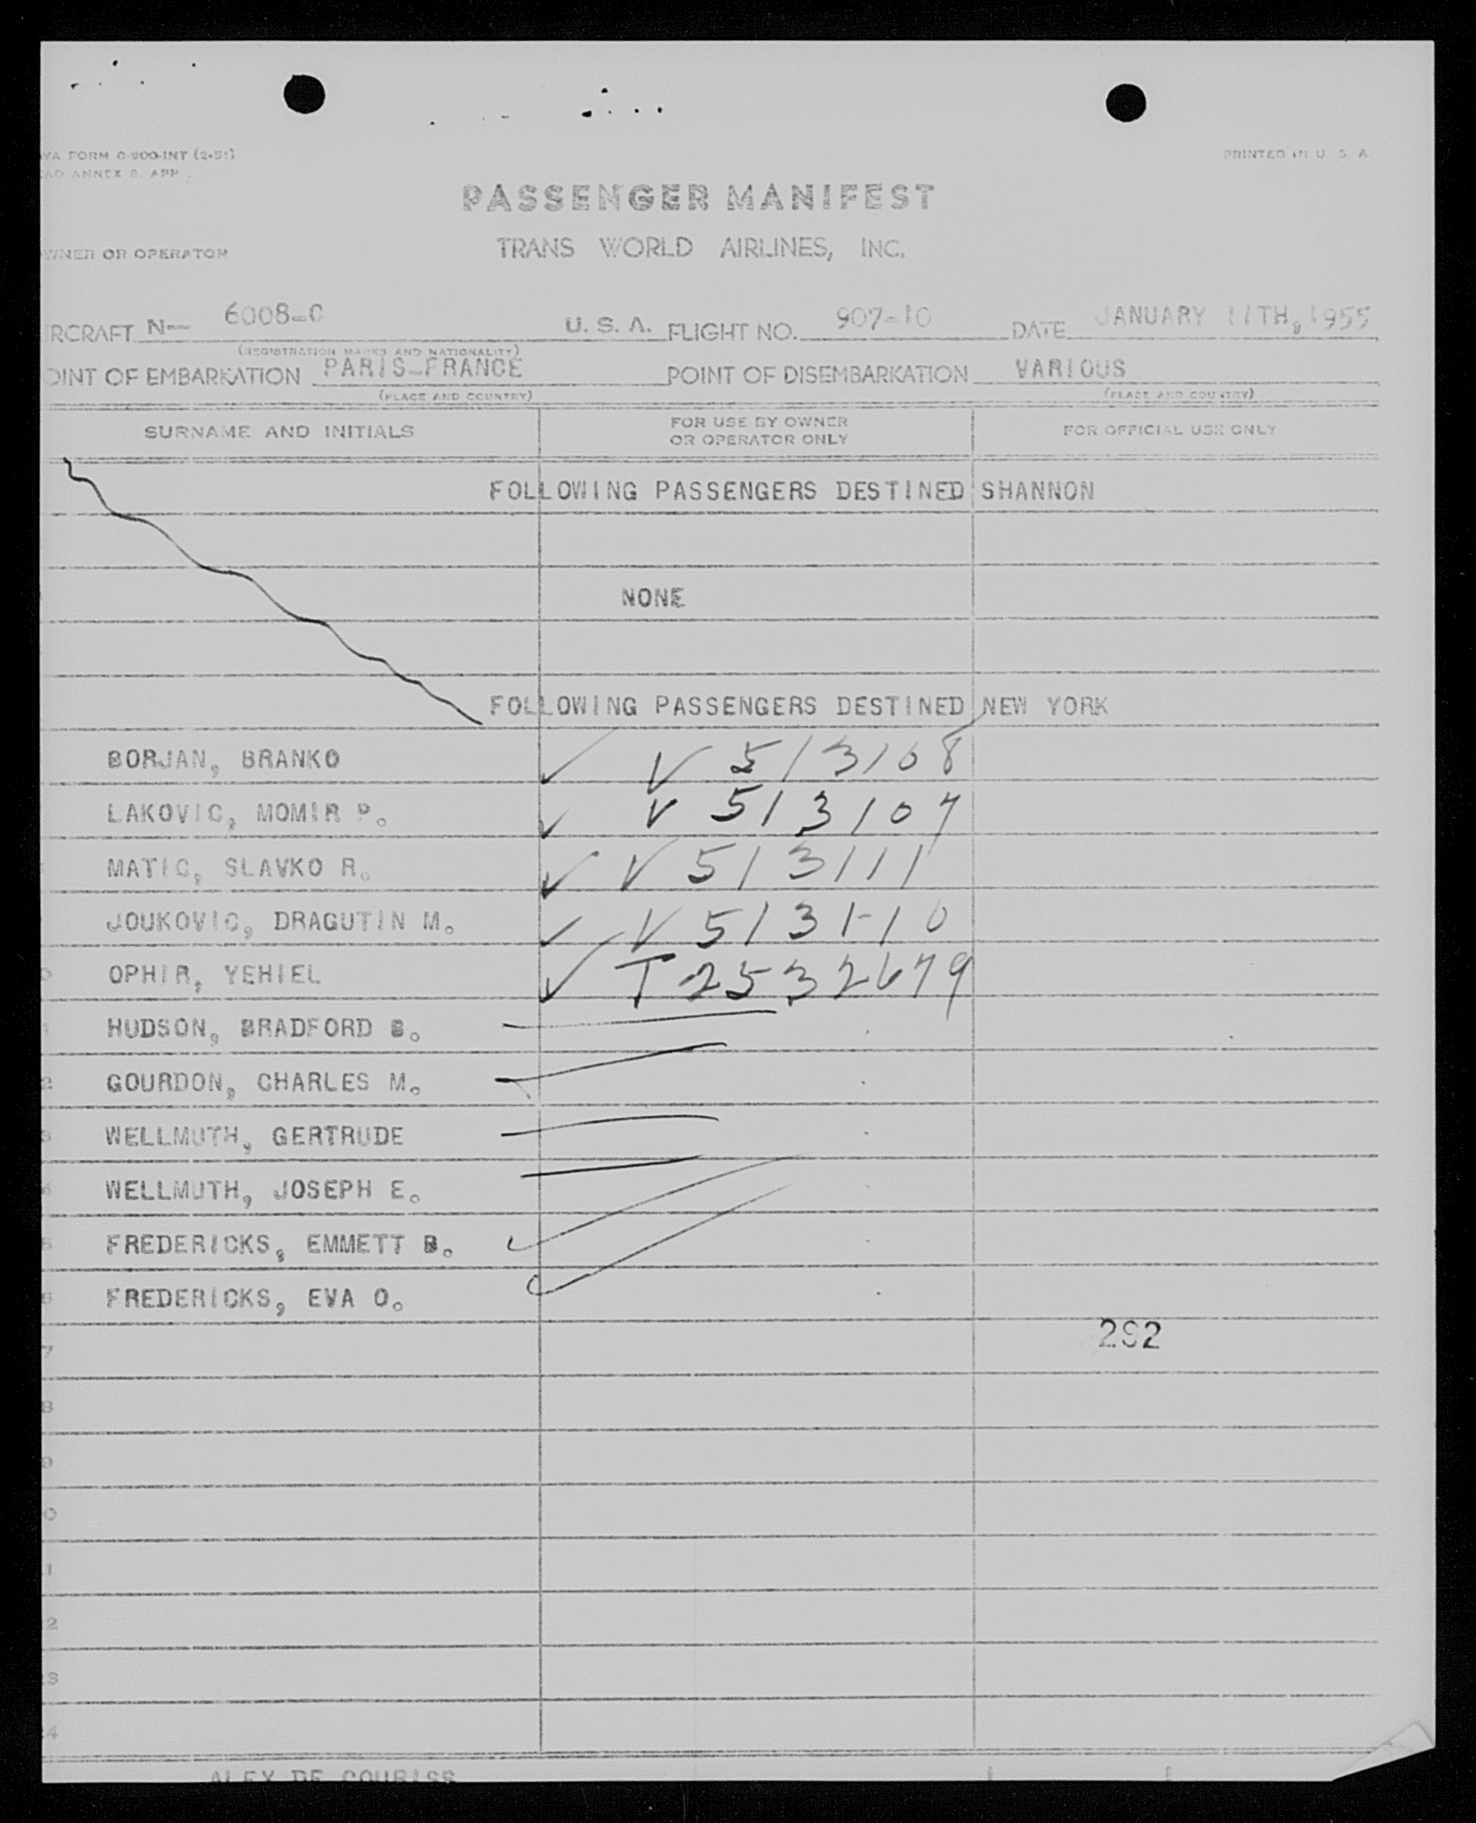 FORM 0-900-INT (2-51)
PRINTED IN U. S. A
ANNEX 8. APP
PASSENGER MANIFEST
WNER OR OPERATOR
TRANS WORLD AIRLINES, INC.
IRCRAFT N-- 6008-C U. S. A. FLIGHT NO. 907-10 DATE JANUARY 11TH, 1955
(REGISTRATION MARKS AND NATIONALITY)
OINT OF EMBARKATION PARIS-FRANCE POINT OF DISEMBARKATION VARIOUS
(PLACE AND COUNTRY) (PLACE AND COUNTRY)
SURNAME AND INITIALS FOR USE BY OWNER OR OPERATOR ONLY FOR OFFICIAL USE ONLY
FOLLOWING PASSENGERS DESTINED SHANNON
NONE
FOLLOWING PASSENGERS DESTINED NEW YORK
BORJAN, BRANKO ✓ V 513108
LAKOVIC, MOMIR P. ✓ V 513107
MATIC, SLAVKO R. ✓ V 513111
JOUKOVIC, DRAGUTIN M. ✓ V 513110
OPHIR, YEHIEL ✓ T 2532679
HUDSON, BRADFORD B.
2 GOURDON, CHARLES M.
WELLMUTH, GERTRUDE
WELLMUTH, JOSEPH E.
FREDERICKS, EMMETT B. ✓
FREDERICKS, EVA O. ✓
292
7
8
9
0
1
2
3
4
ALEX DE COURISS